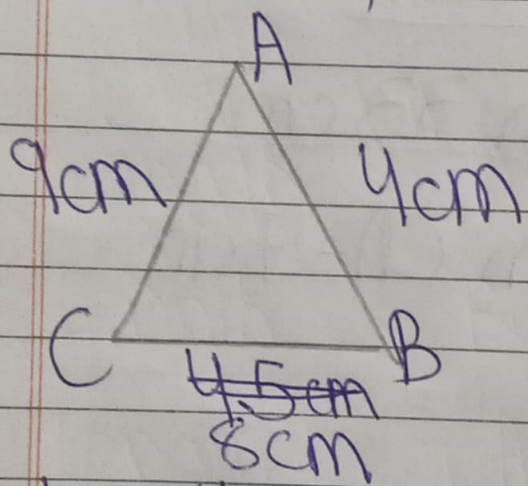 A
9cm
4cm
C
B
4.5cm
8cm